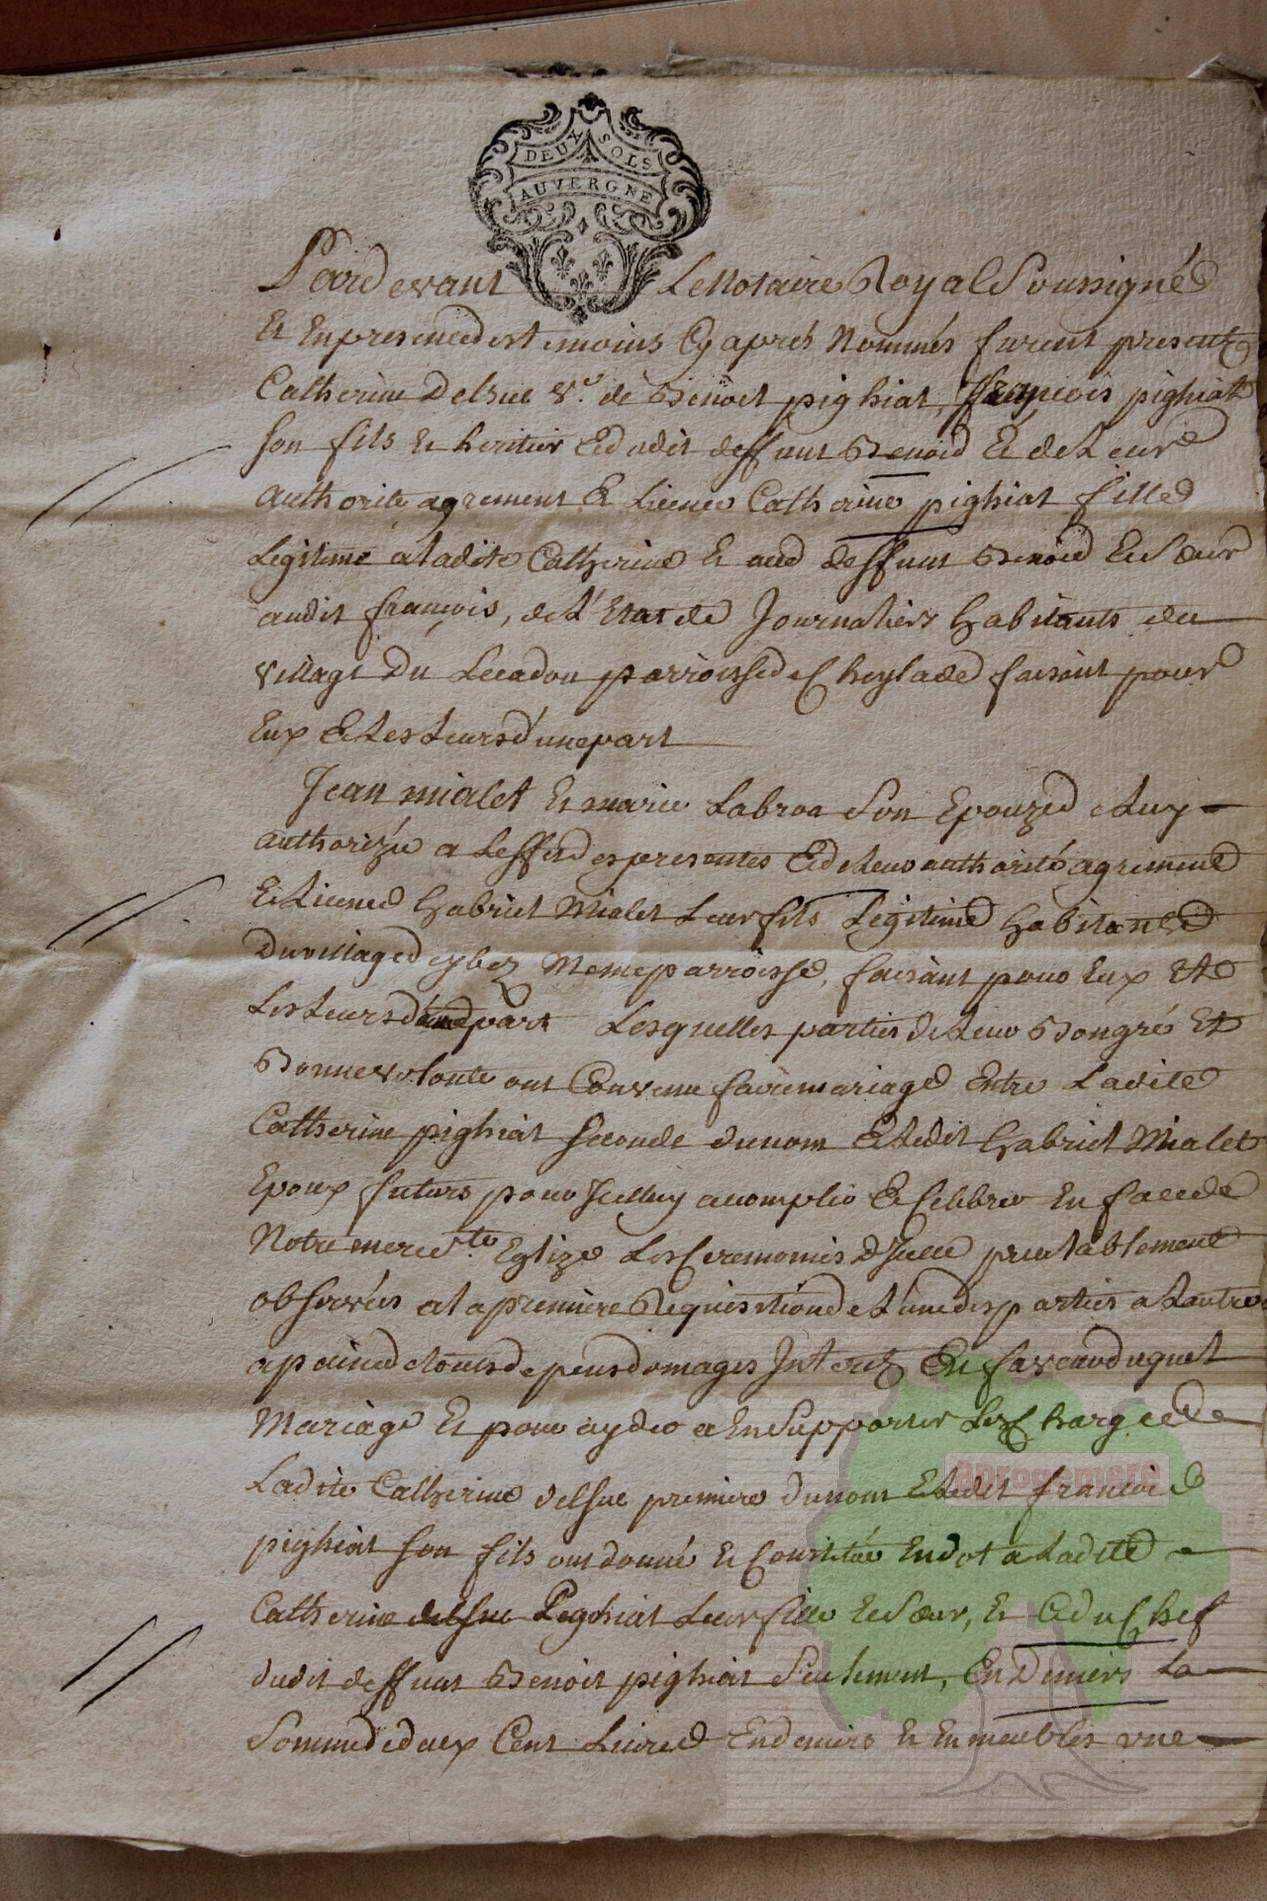 DEUX SOLS
AUVERGNE
Pardevant Le Notaire Royal Soussigné
Et En presence des temoins Cy aprés Nommés furent presents
Catherine Delsuc v.e de Benoit pighiat, françois pighiat
son fils et heritier dudit deffunt Benoid Et de Leur
authorité agrement Et Licence Catherine pighiat fille
Legitime a ladite Catherine Et aud deffunt Benoid Et Sœur
audit françois, de L'Etat de Journaliers habitants du
village Du Lecadou parroisse de Cheylade faisant pour
Eux Et Les Leurs d'une part
Jean mialet Et marie Labroa Son Epouze de Luy
authorizée a Leffet des presentes Et de Leur authorité agrement
Et Licence Gabriel Mialet Leur fils Legitime habitants
Du village de Meme parroisse, faisant pour Eux Et
Les Leurs d' part Lesquelles parties de Leur Bon gré Et
Bonne volonté ont Convenu faire mariage Entre Ladite
Catherine pighiat seconde du nom Et Ledit Gabriel Mialet
Epoux futurs pour Icelluy acomplir Et Celebrer En face de
Notre mere s.te Eglize Les Ceremonies d'Icelle prealablement
observées a la premiere Requisition de L'une des parties a Lautre
a peine de tous depens domages Interez Et En faveur duquel
Mariage Et pour ayder a En Supporter Les Charges
Ladite Catherine delsuc premiere du nom Et Ledit francois
pighiat son fils ont donné Et Constitué En dot a Ladite
Catherine Pighiat Leur fille Et Sœur, Et du Chef
dudit deffunt Benoit pighiat Seulement, En Deniers La
Somme de deux Cent Livres En deniers Et En meubles une